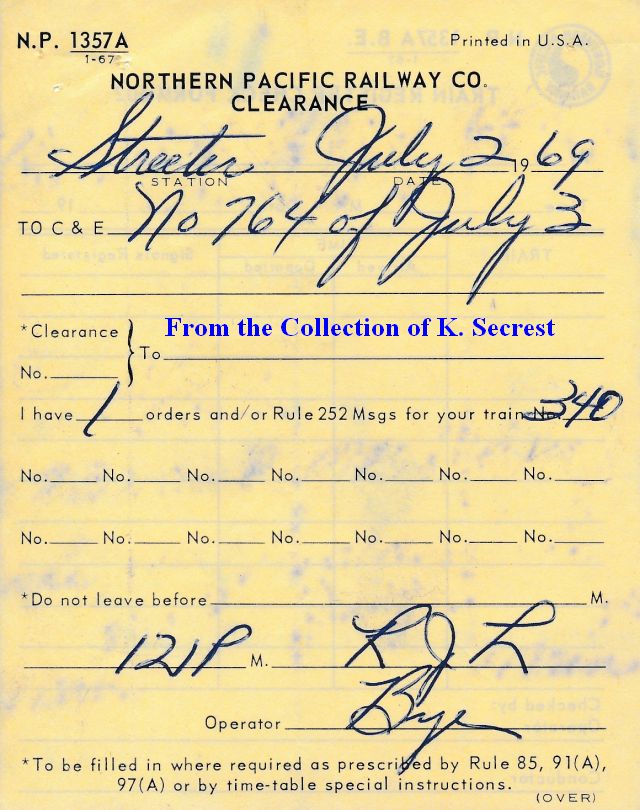 N.P. 1357A Printed in U.S.A.
1-67
NORTHERN PACIFIC RAILWAY CO.
CLEARANCE
Streeter July 2 1969
STATION DATE
TO C & E No 764 of July 3
*Clearance
From the Collection of K. Secrest
To
No.
I have 1 orders and/or Rule 252 Msgs for your train No. 340
No. No. No. No. No. No. No.
No. No. No. No. No. No. No.
*Do not leave before M.
121P M. R J L
Operator Bye
*To be filled in where required as prescribed by Rule 85, 91(A),
97(A) or by time-table special instructions.
(OVER)